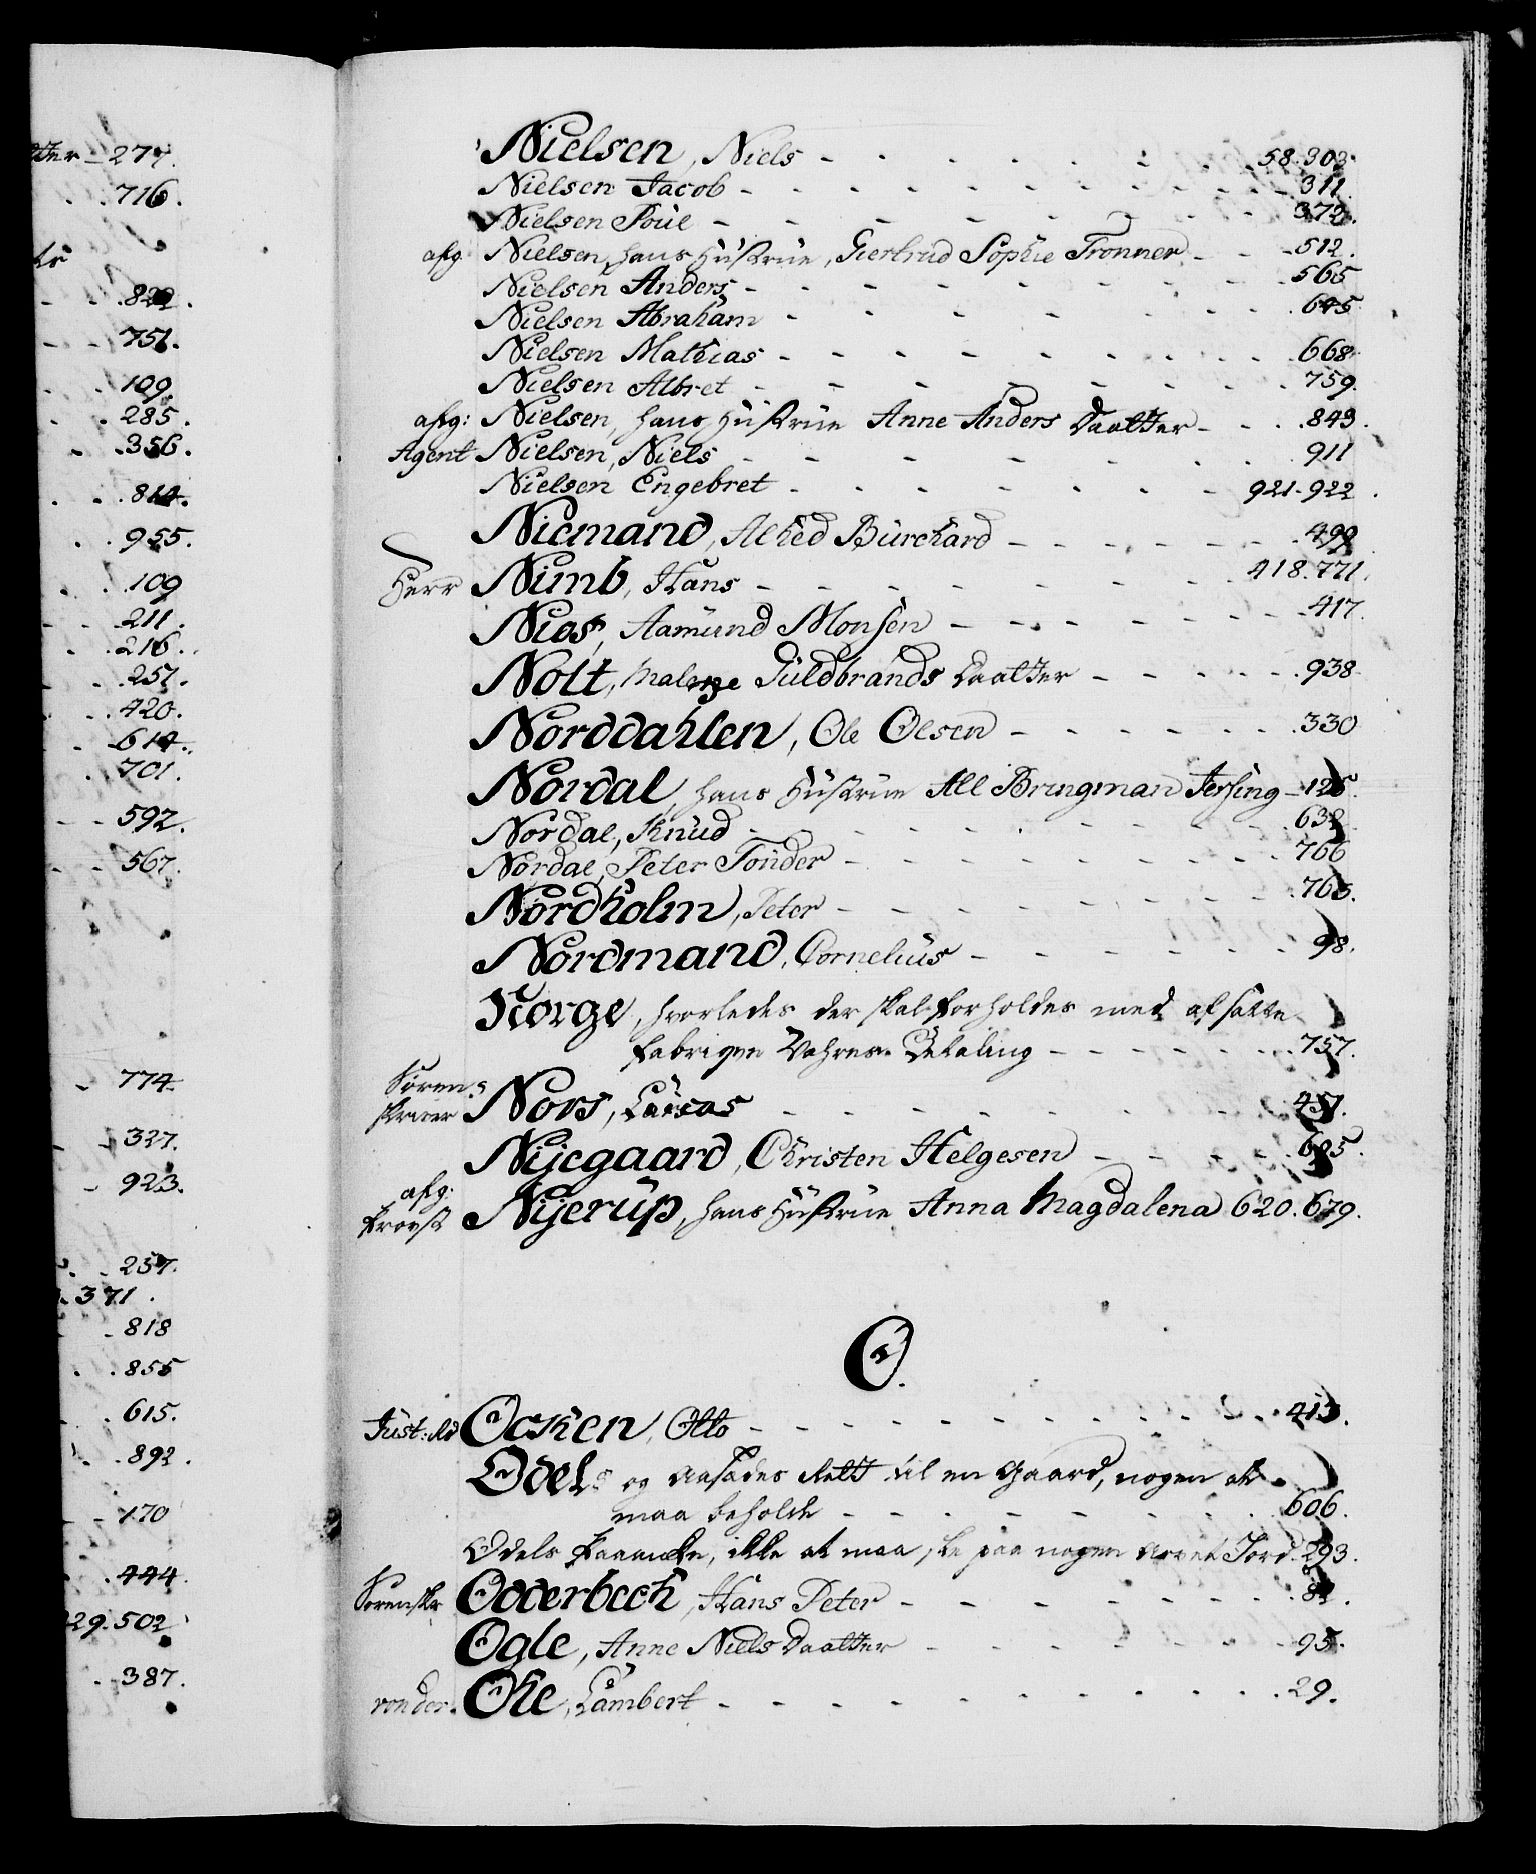 tter - 277.
716.
822.
751.
109.
285.
356.
814.
955.
109
211.
216.
257.
420.
614.
701.
592.
567.
774.
327.
923.
257.
371.
818
855
615.
892.
170
444.
29. 502
387.
Nielsen, Niels - 58. 303.
Nielsen Jacob - 311.
Nielsen Poul - 372.
afg. Nielsen, hans Hüstrüe, Giertrud Sophie Tronner - 512.
Nielsen Anders - 565
Nielsen Abraham - 645
Nielsen Mathias - 668.
Nielsen Albret - 759.
afg: Nielsen, hans Hüstrüe Anne Anders Daatter - 843.
Agent Nielsen, Niels - 911
Nielsen Engebret - 921. 922.
Niemand, Alhed Bürchard - 499
Herr Nimb, Hans - 418. 771.
Nios, Aamünd Monsen - 417.
Nolt, Guldbrands Daatter - 938.
Norddahlen, Ole Olsen - 330
Nordal, hans Hüstrüe All Bringman Jersing - 125.
Nordal, Knud - 632
Nordal, Peter Tonder - 766
Nordholm, Peter - 765.
Nordmand, Cornelius - 98.
Norge, hvorledes der skal forholdes med afsatte
Fabriqven Vahres Betaling - 757.
Soren-
skriver Nors, - 451.
Nyegaard, Christen Helgesen - 685.
afg:
Provst Nyerüp, hans Hüstrüe Anna Magdalena 620. 679.
O.
Just: Rd Ocken, Otto - 413.
Odels og Aasædes Rett til en Gaard, nogen at
maa beholde - 606.
Odels ikke at maa skee paa nogen Jord. 293.
Sorenskr Odderbech, Hans Peter - 82.
Ogle, Anne Niels Daatter - 95.
Oke, Lambert - 29.